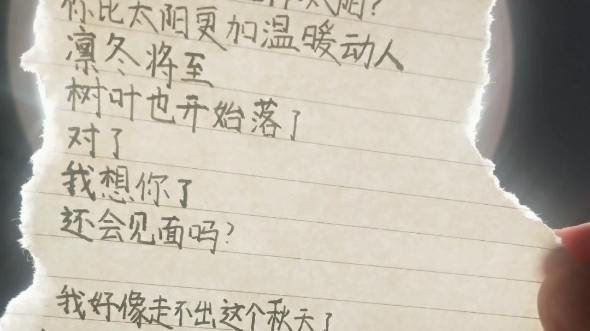 你比太阳更加温暖动人
凛冬将至
树叶也开始落了
对了
我想你了
还会见面吗?
我好像走不出这个秋天了